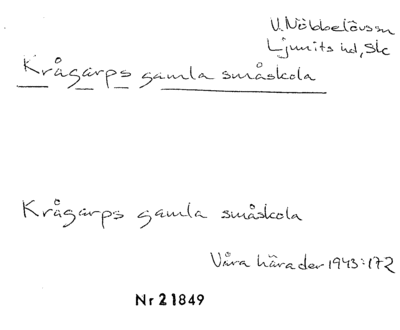 V. Nöbbelövssn
Ljunits hd, Sk
Krågarps gamla småskola
Krågarps gamla småskola
Våra härader 1943:172
Nr 21849